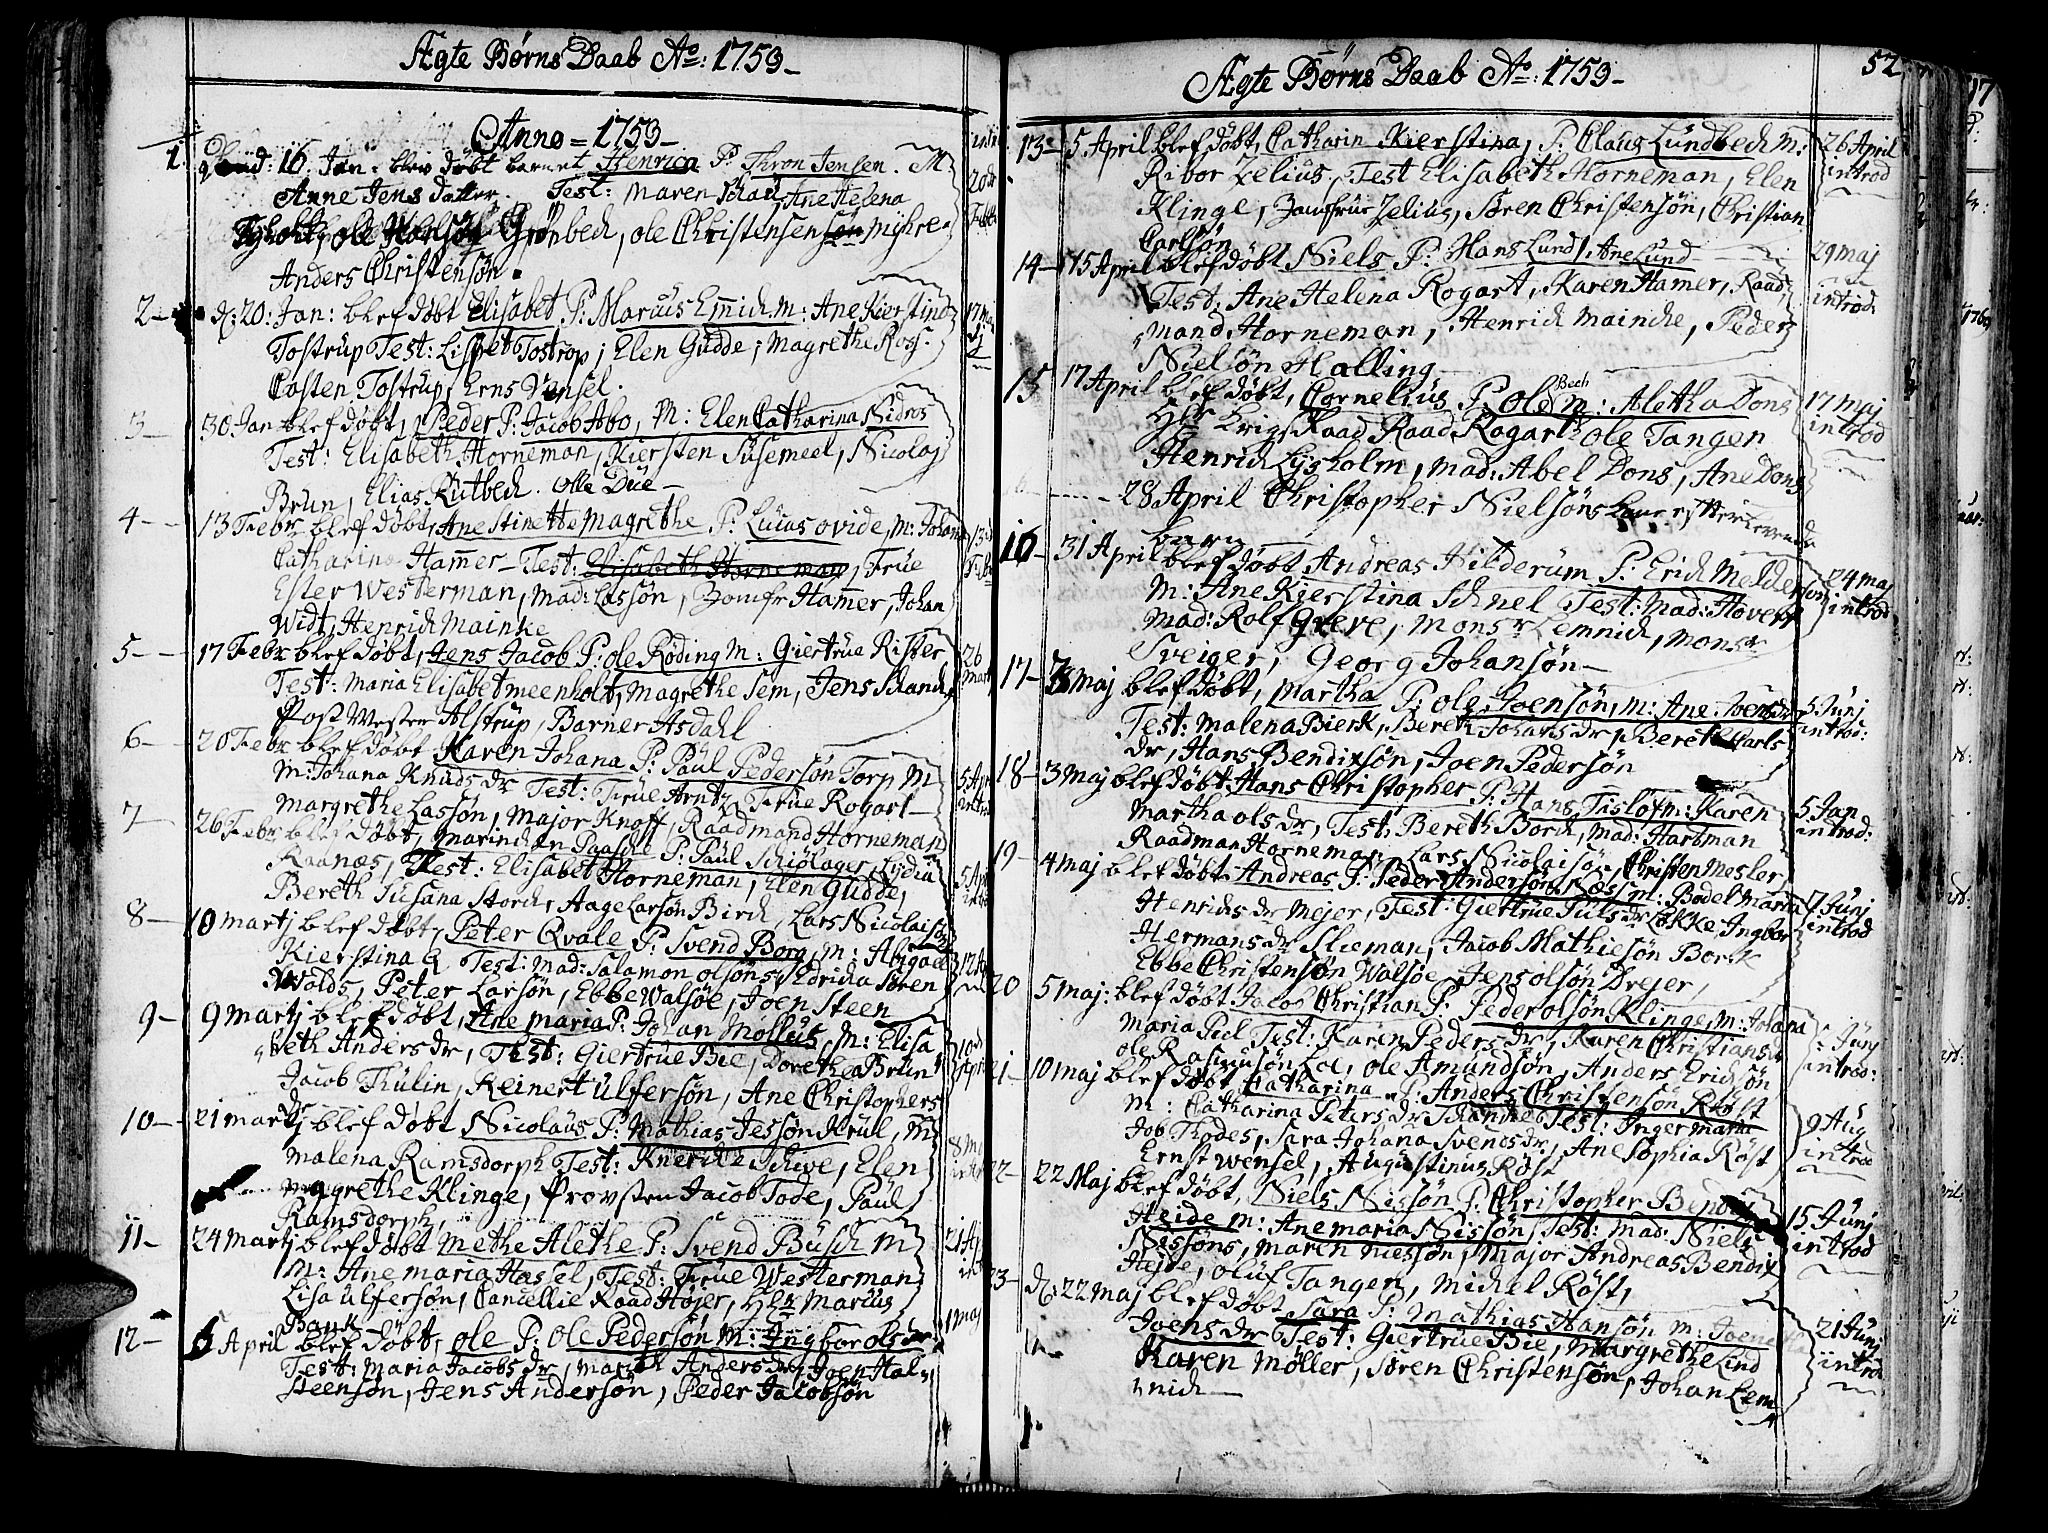 Ægte Børns Daab Ao: 1753
Anno = 1753
1. 16. Jan: blev døbt barnet Henrica P: Thron Jensen. M
Anne Jens datter. Test: Maren Ane Helena
Ole Hansøn Grønbech, ole Christensen Myhre
Anders Christensøn.
2 d: 20: Jan: blef døbt Elisabet P: Marcus Emich m: Ane Kierstina
Tostrup Test: Lisbet Tostrop, Elen Gudde, Magrethe Ross.
Casten Tostrup, Erns Vensel.
3 30 Jan blef døbt, Peder P: Jacob Abo, M: Elen Catharina Sidros
Test: Elisabeth Horneman, Kiersten Susemeel, Nicolaj
Brun, Elias Rutbech. Olle Due
4 13 Febr blef døbt, Ane Stinette Magrethe P: Lucas ovide, m: Johana
Catharina Hammer Test: Elisabeth Horneman, Frue
Ester Westerman, Mad: Lassøn, Jomfr Hammer, Johan
Widt, Henrich Mainke 13 Febr
5 17 Febr blef døbt, Jens Jacob P: ole Røding M: Giertrue Rister 26
Test: Maria Elisabet meenholt, Magrethe Sem, Jens Schandke mart
Post Mester Alstrup, Barner Asdahl
6 20 Febr blef døbt Karen Johana P: Paul Pedersøn Torp M
M: Johana Knuds dr Test: Frue Arntz, Frue Rogart
Margrethe Lassøn, Major Knoff, Raadmand Horneman
7 26 Febr blef døbt, Marinchen Paasche P: Paul Schiølager, Lydia
Raanæs, Test: Elisabet Horneman, Elen Gudde,
Bereth Susana Storch, Aage Larsøn Birch, Lars Nicolaisøn
8 10 martj blef døbt, Peter Qvale P: Svend Borg, M: Abigael
Kierstina Q Test: Mad: Salamon olsøns, Edricka Søren
Wolds, Peter Larsøn, Ebbe Walsøe, Joen Steen
9 9 martj blef døbt, Ane maria P: Johan Mollus, M: Elisa
beth Anders dr, Test: Giertrue Bie, Dorethea Brun
Jacob Thulin, Reinert ulfersøn, Ane Christophers
dr
10 21 martj blef døbt Nicolaus P: Mathias Jessøn Krul, M
Malena Ramsdorph Test: Schive, Elen
Magrethe Klinge, Provsten Jacob Tode, Paul
Ramsdorph,
11 24 Martj blef døbt Methe Alethe P: Svend Busch M
M: Ane maria Hassel, Test: Frue Westerman
Lisa ulfersøn, Cancellie Raad Højer, Hr Marcus
Bank
12 6 April blef døbt, ole P: Ole Pedersøn M: Ingbor ols dr
Test: Maria Jacobs dr, Marith Anders dr, Joen Hal
steensøn, Jens Andersøn, Peder Jacobsøn
52
Ægte Børns Daab Ao: 1753
13 5 April blef døbt, Catharin Kierstina, P: Claus Lundbech M: 26 April
Ribor Zelius, Test Elisabeth Horneman, Elen introd
Klinge, Jomfrue Zelius, Søren Christensøn, Christian
Carlsøn
14 15 April blef døbt Niels P: Hans Lund, Ane Lund 29 maj
Test: Ane Helena Rogart, Karen Hamer, Raad introd
mand Horneman, Henrich Mainche, Peder
Nielsøn Halling
15 17 April blef døbt, Cornelius P: Ole Bech M: Aletha Dons 17 maj
Hr Krigs Raad Raad Rogart ole Tangen introd
Henrich Lysholm, Mad: Abel Dons, Ane Dons
28 April Christopher Nielsøns
barn
16 31 April blef døbt Andreas Hilderum P: Erich Meldersøn 24 maj
M: Ane Kierstina Schnel Test: Mad: Hovert introd
Mad: Rolf Greve, Monsr Lemnich, Monsr
Sveiger, Georg Johansøn
17 3 maj blef døbt, Martha P: ole Joensøn, M: Ane Joens dr 5 Junj
Test: Malena Bierk, Bereth Johans dr, Bereth Carls introd:
dr, Hans Bendixsøn, Joen Pedersøn
18 3 maj blef døbt Hans Christopher P: Hans Tisløf m: Karen 5 Jan
Martha ols dr, Test: Bereth Borch, Mad: Hartman introd:
Raadman Horneman, Lars Nicolaisøn, Christen Mesler,
19 4 maj blef døbt Andreas P: Peder Andersøn Næss M: Bodel Maria 7 Junj
Henrichs dr Mejer, Test: Giertrue Puls dr Løkke Ingbor introd
Hermans dr Slieman, Jacob Mathiesøn Borch
Ebbe Christensøn Walsøe, Jens olsøn Drejer,
20 5 maj: blef døbt Jacob Christian P: Peder olsøn Klinge, M: Johana
Maria Piil Test: Karen Peders dr, Karen Christians dr Junj
ole Rasmusøn Loe, ole Amundsøn, Anders Erichsøn introd:
21 10 maj blef døbt Catharina P: Anders Christensøn Røst
M: Catharina Peters dr Schanche Test: Inger Maria 9 Aug
Job Thodes, Sara Johana Svends dr, Ane Sophia Røst introd
Ernst Wensel, Augustinus Røst
22 22 Maj blef døbt, Niels Nissøn P: Christopher Bendix
Heide M: Ane maria Nissøn, Test: Mad: Niels 15 Junj
Nissøns, Maren Niessøn, Major Andreas Bendix introd
Hejde, Oluf Tangen, Michel Røst,
23 d: 22 maj blef døbt Sara P: Mathias Hansøn M: Joen
Joens dr Test: Giertrue Bie, Margrethe Lind 21 Junj
Karen Møller, Søren Christensøn, Johan Lem introd
nich